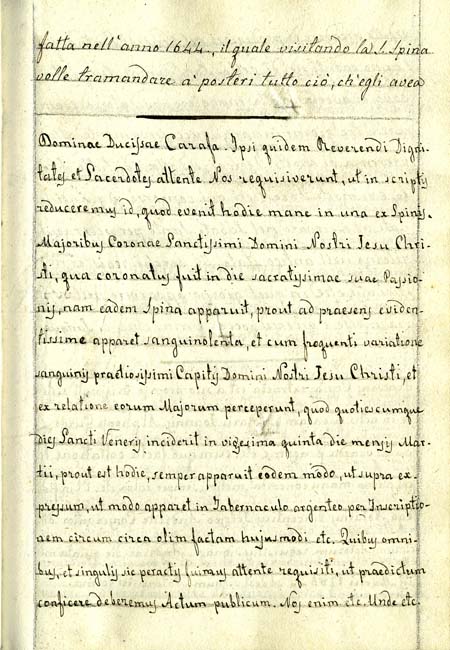 fatta nell'anno 1644., il quale visitando la S. Spina
volle tramandare a' posteri tutto ciò, ch'egli avea
Dominae Ducissae Carafa. Ipsi quidem Reverendi Digni-
tates et Sacerdotes attente Nos requisiverunt, ut in scriptis
reduceremus id, quod evenit hodie mane in una ex Spinis
Majoribus Coronae Sanctissimi Domini Nostri Jesu Chri-
sti, qua coronatus fuit in die sacratissimae suae Passio-
nis, nam eadem Spina apparuit, prout ad praesens eviden-
tissime apparet sanguinolenta, et cum frequenti variatione
sanguinis praetiosissimi Capitis Domini Nostri Jesu Christi, et
ex relatione eorum Majorum perceperunt, quod quotiescumque
dies Sancti Veneris inciderit in vigesima quinta die mensis Mar-
tii, prout est hodie, semper apparuit eodem modo, ut supra ex-
pressum, ut modo apparet in Tabernaculo argenteo per Inscriptio-
nem circum circa olim factam hujusmodi etc. Quibus omni-
bus, et singulis sic peractis fuimus attente requisiti, ut praedictum
conficere deberemus Actum publicum. Nos enim etc. Unde etc.